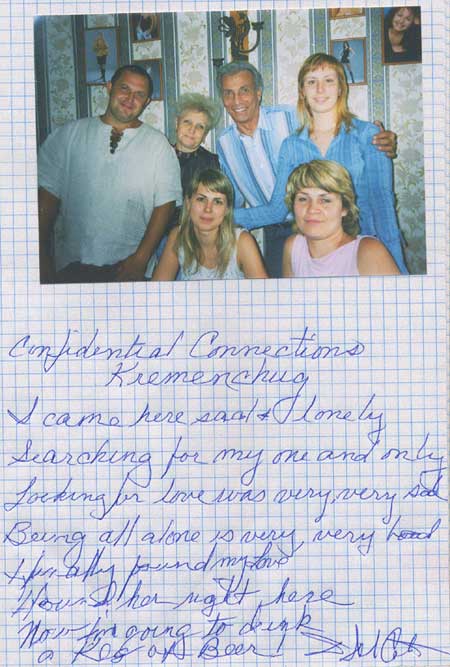 Confidential Connections
Kremenchug
I came here sad & lonely
Searching for my one and only
Looking for love was very, very sad
Being all alone is very, very bad
I finally found my love
Found her right here
Now I'm going to drink
a Keg of Beer!